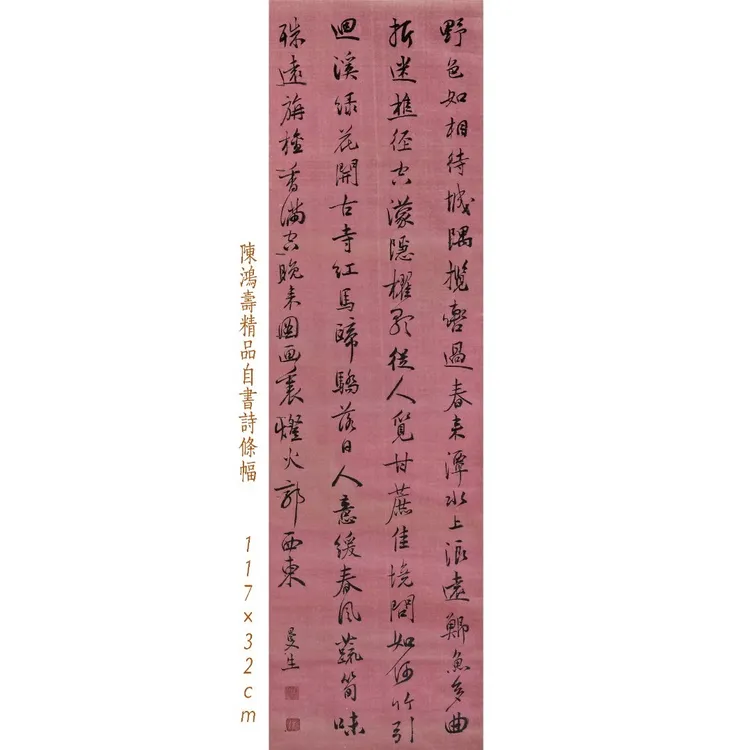 野色如相待城隅攬轡過春来潭水上派遠魚多曲
折迷樵径空濛隱櫂歌從人覓甘蔗佳境問如何竹引
迴溪緑花開古寺紅馬蹄驕落日人意緩春風蔬筍味
殊遠旃檀香滿空晚来圖画裏燈火郭西東
曼生
陳鴻壽精品自書詩條幅 117×32cm